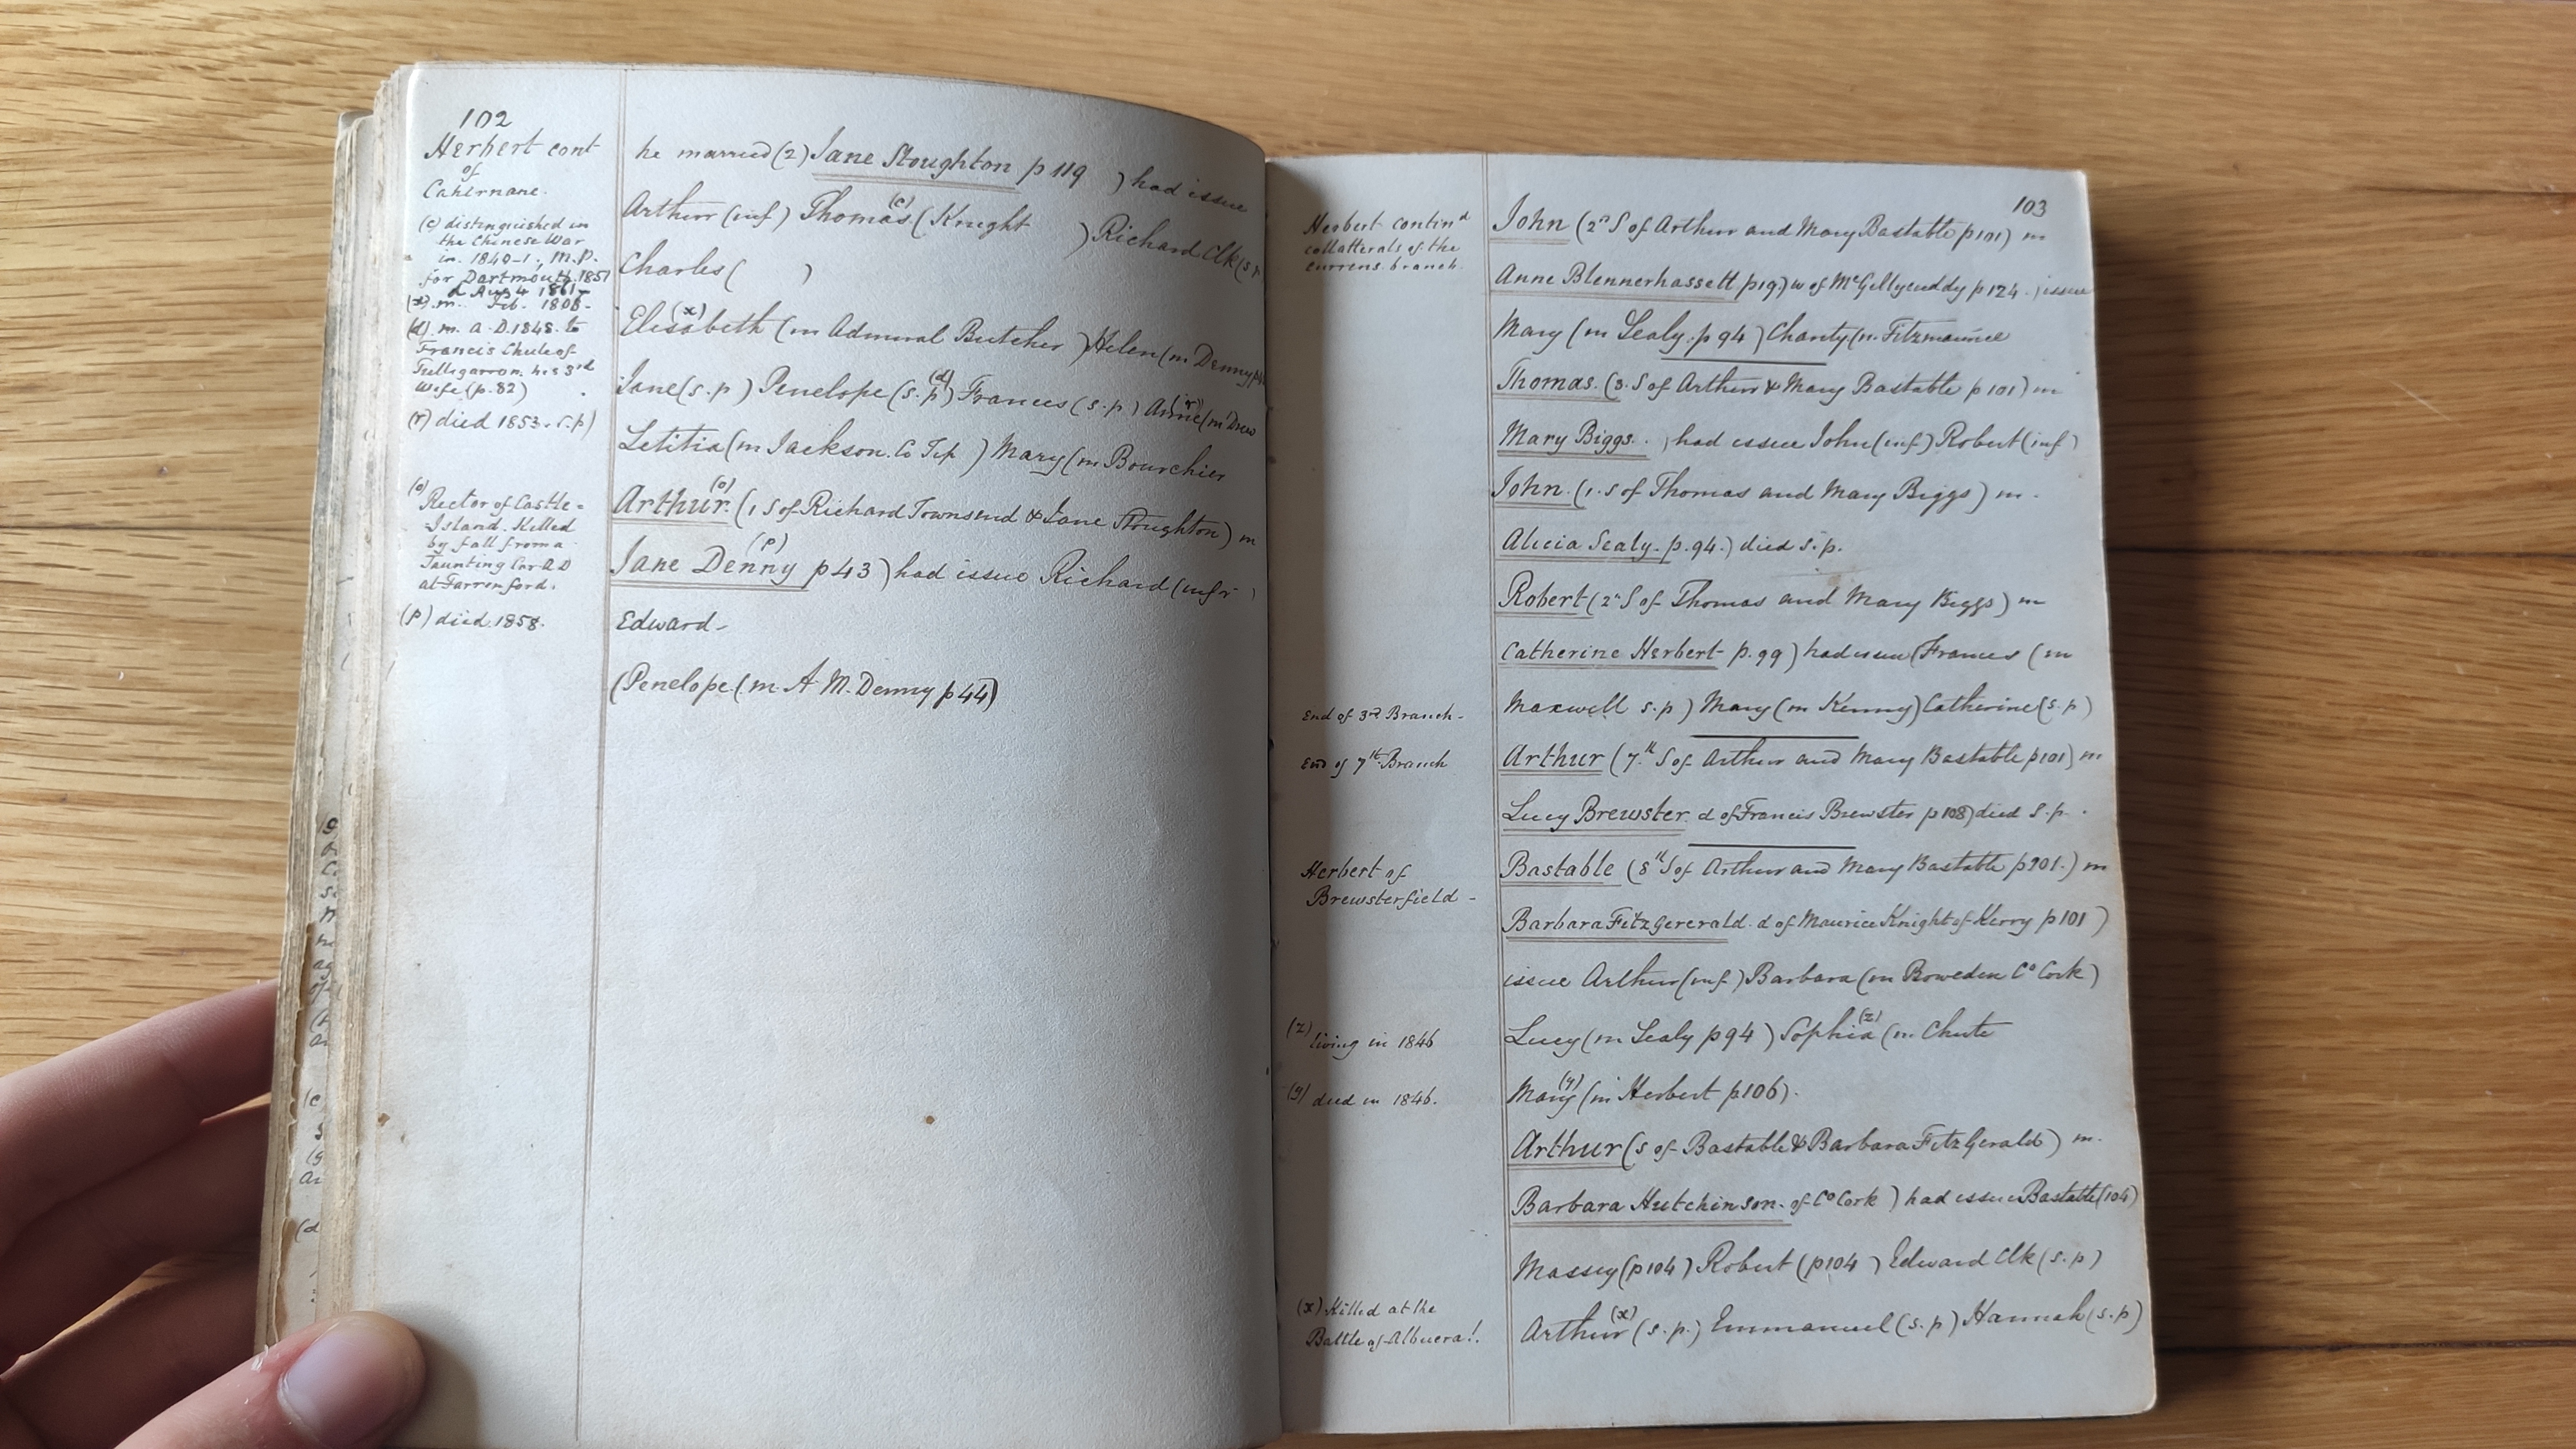 102
Herbert cont
of
Cahernane.
(c) distinguished in
the Chinese War
in 1840-1, M.P.
for Dartmouth 1857
d Aug 4 1861-
(x) m. Feb. 1806-
(d) m. A.D. 1848. to
Francis Chute of
Tulligarron. his 3rd
Wife (p. 82)
(r) died 1853. s.p)
(o)
Rector of Castle=
-Island. Killed
by fall from a
Jaunting Car AD
at Farrenford.
(p) died. 1858.
he married (2) Jane Stoughton p 119 ) had issue
Arthur (inf) Thomas (c) (Knight ) Richard Clk (s.p
Charles ( )
Elisabeth (x) (m Admiral Butcher ) Helen (m Denny
Jane (s.p) Penelope (s.p) (d) Frances (s.p) Anne (r) (m Drew
Letitia (m Jackson. Co Tip ) Mary (m Bourchier
Arthur. (o) (1 S of Richard Townsend & Jane Stoughton) m
Jane Denny (p) p 43 ) had issue Richard (infr )
Edward-
(Penelope (m. A. M. Denny p 44)
103
Herbert contind
collatterals of the
Currens branch.
End of 3rd Branch-
End of 7th Branch
Herbert of
Brewsterfield -
(z) living in 1846
(y) died in 1846.
(x) Killed at the
Battle of Albuera!.
John (2n S of Arthur and Mary Bastable p 101) m
Anne Blennerhassett p 19) w of McGillycuddy p 124. ) issue
Mary (m Sealy. p 94 ) Charity (m. Fitzmaurice
Thomas. (3. S of Arthur & Mary Bastable p 101) m
Mary Biggs. ) had issue John (inf) Robert (inf)
John. (1. S of Thomas and Mary Biggs) m.
Alicia Sealy. p. 94. ) died s.p.
Robert (2n S of Thomas and Mary Biggs) m
Catherine Herbert p. 99 ) had issue (Frances (m
Maxwell s.p) Mary (m Kenny) Catherine (s.p)
Arthur (7th S of Arthur and Mary Bastable p 101) m
Lucy Brewster. d of Francis Brewster p 108) died s.p.
Bastable (8th S of Arthur and Mary Bastable p 101.) m
Barbara FitzGererald. d of Maurice Knight of Kerry p 101 )
issue Arthur (inf) Barbara (m Boweden Co Cork)
Lucy (m Sealy p 94 ) Sophia (z) (m. Chute
Mary (y) (m Herbert p 106).
Arthur (s of Bastable & Barbara FitzGerald) m.
Barbara Hutchinson. of Co Cork ) had issue Bastable (104)
Massey (p 104) Robert (p 104 ) Edward Clk (s.p)
Arthur (x) (s.p.) Emmanuel (s.p) Hannah (s.p)